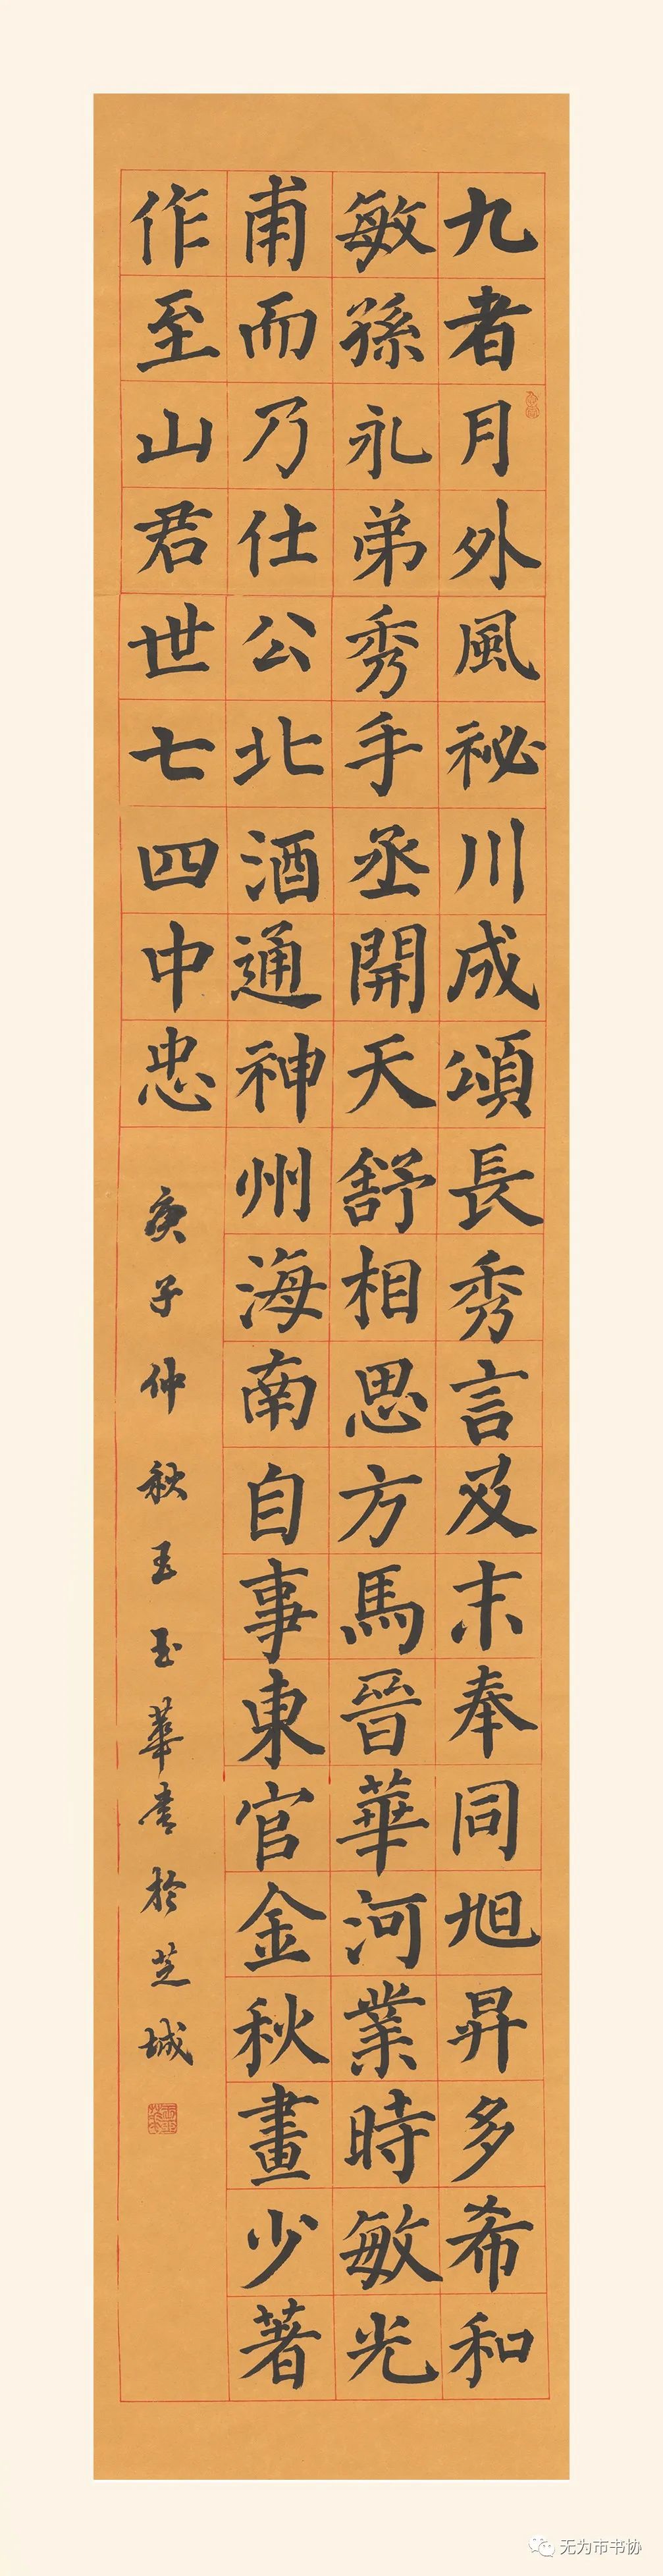 九者月外風祕川成頌長秀言及末奉同旭昇多希和
敏孫永弟秀手丞開天舒相思方馬晉華河業時敏光
甫而乃仕公北酒通神州海南自事東官金秋畫少著
作至山君世七四中忠
庚子仲秋王玉華書於芝城
无为市书协